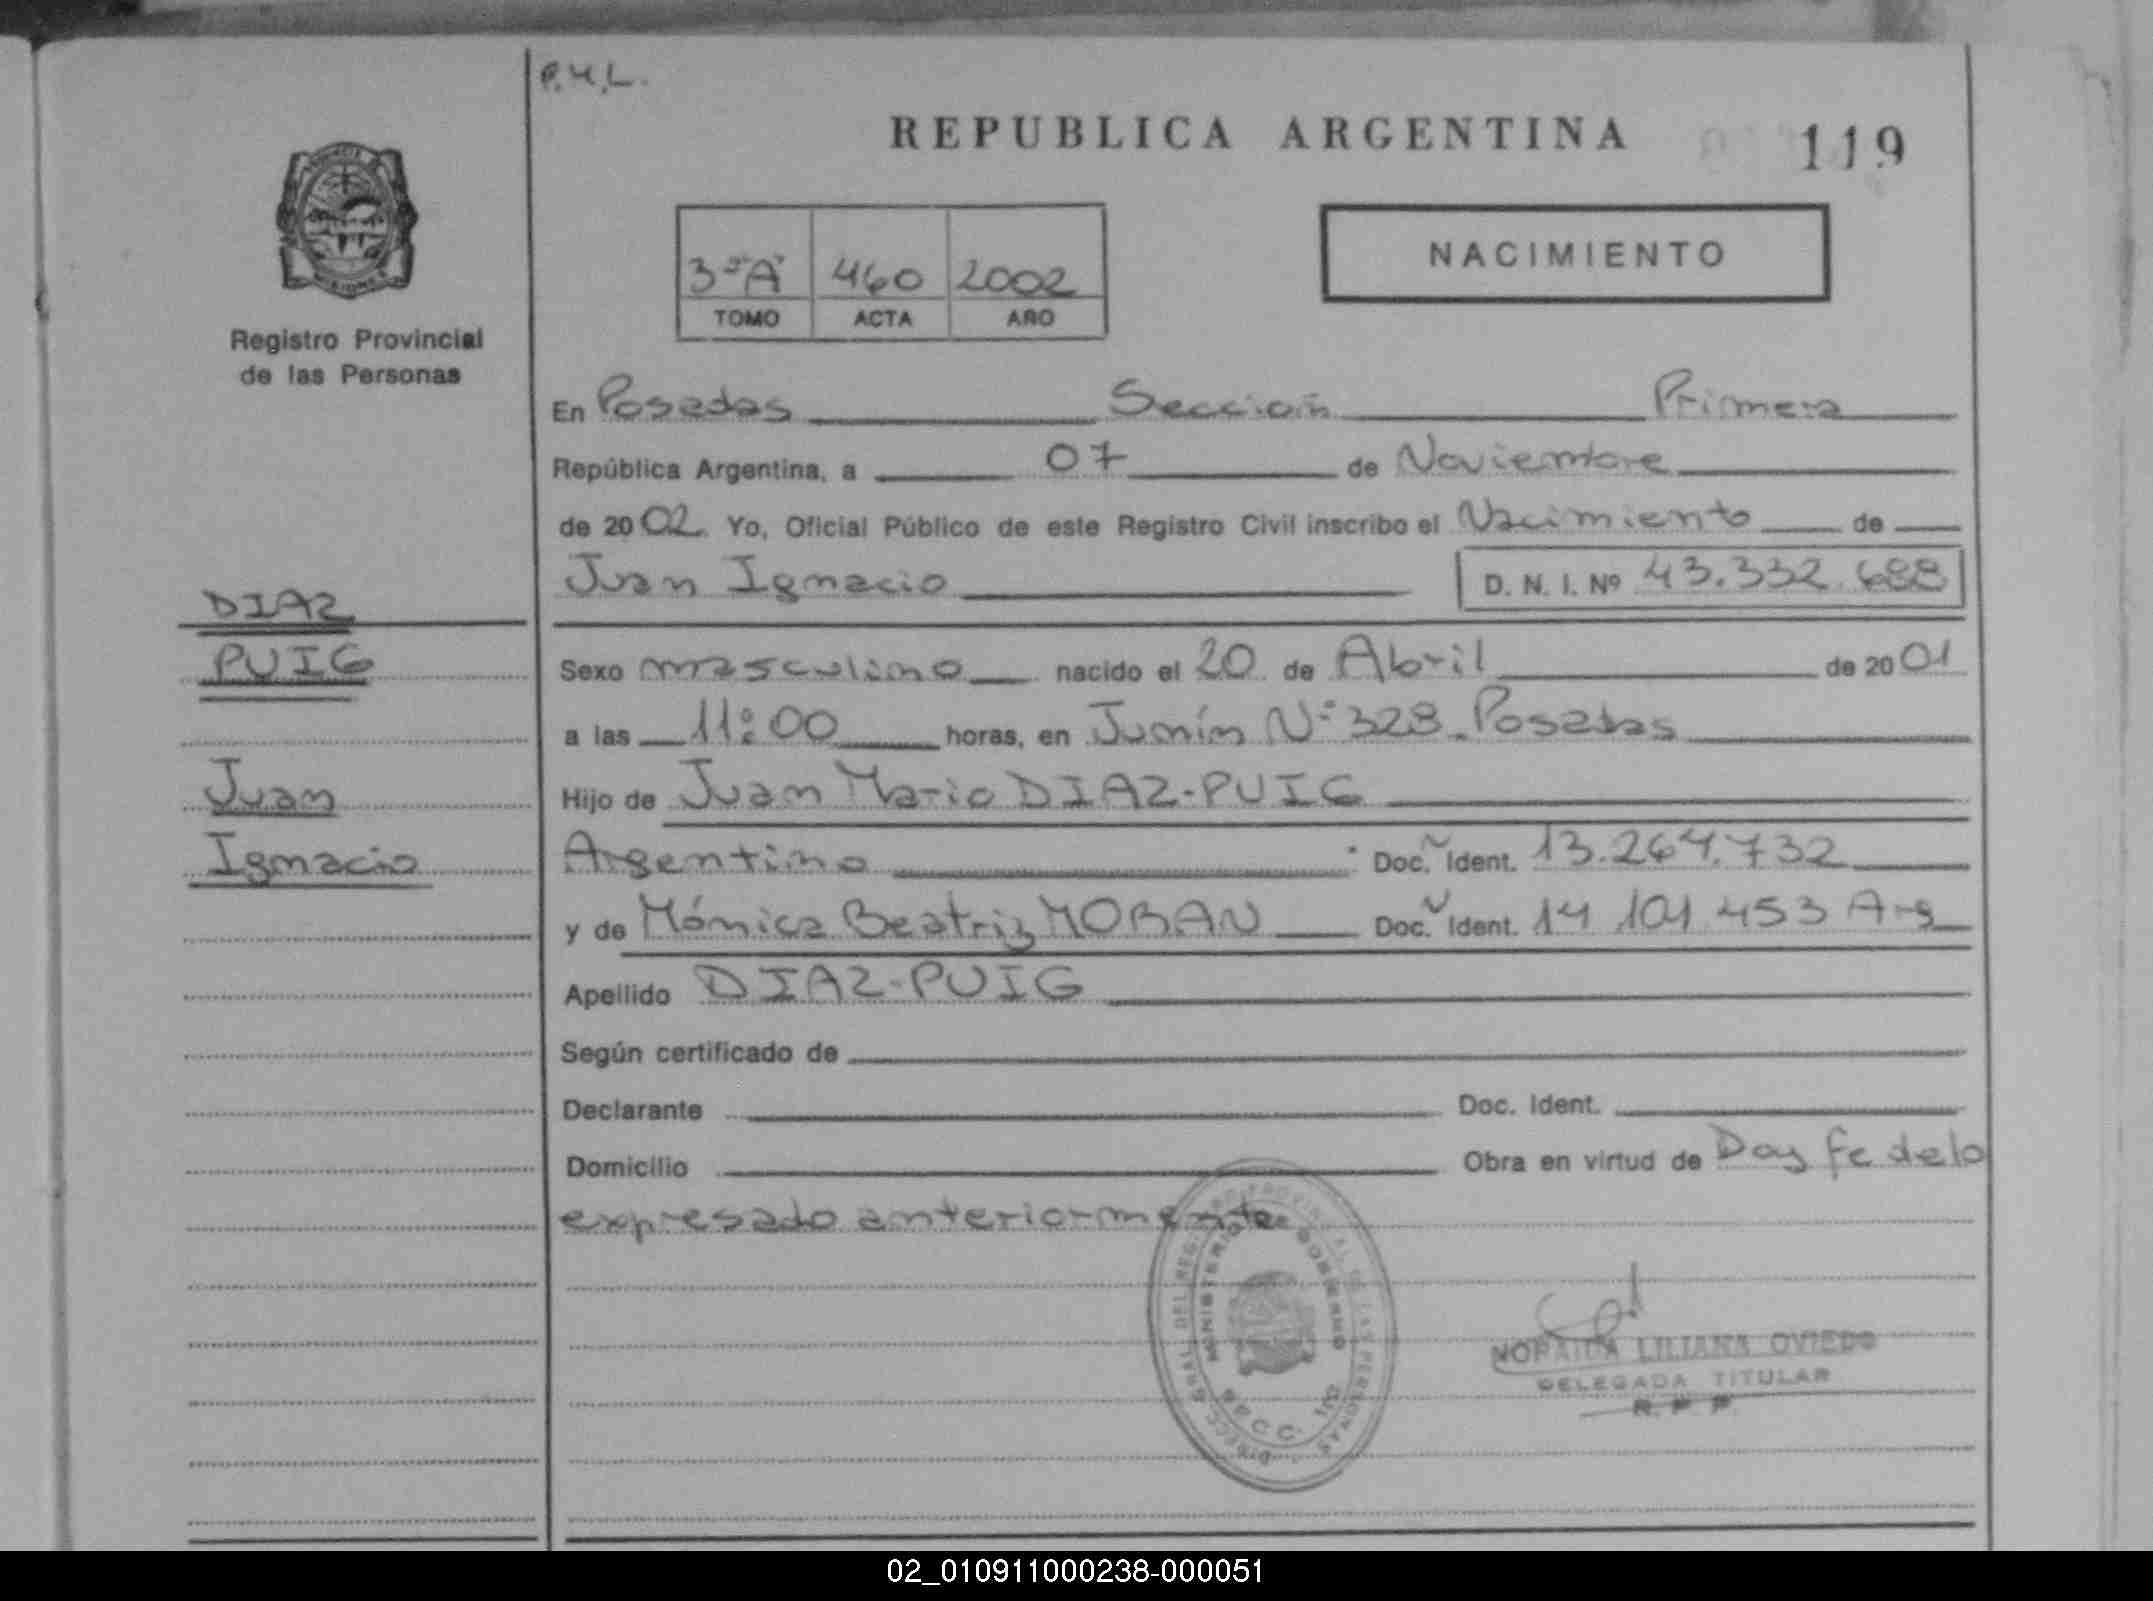 P.H.L.
REPUBLICA ARGENTINA 119
NACIMIENTO
3º"A" 460 2002
TOMO ACTA AÑO
Registro Provincial
de las Personas
En Posadas Sección Primera
República Argentina, a 07 de Noviembre
de 2002. Yo, Oficial Público de este Registro Civil inscribo el Nacimiento de
Juan Ignacio D. N. I. Nº 43.332.688
DIAZ
PUIG
Juan
Ignacio
Sexo masculino nacido el 20 de Abril de 2001
a las 11:00 horas, en Junín Nº 328. Posadas
Hijo de Juan Mario DIAZ-PUIG
Argentino Doc. Ident. 13.264.732
y de Mónica Beatriz MORAN Doc. Ident. 14 101 453 Arg
Apellido DIAZ-PUIG
Según certificado de
Declarante Doc. Ident.
Domicilio Obra en virtud de Doy fe de lo
expresado anteriormente
MINISTERIO DE GOBIERNO
LILIANA OVIEDO
DELEGADA TITULAR
R. P. P.
02_010911000238-000051